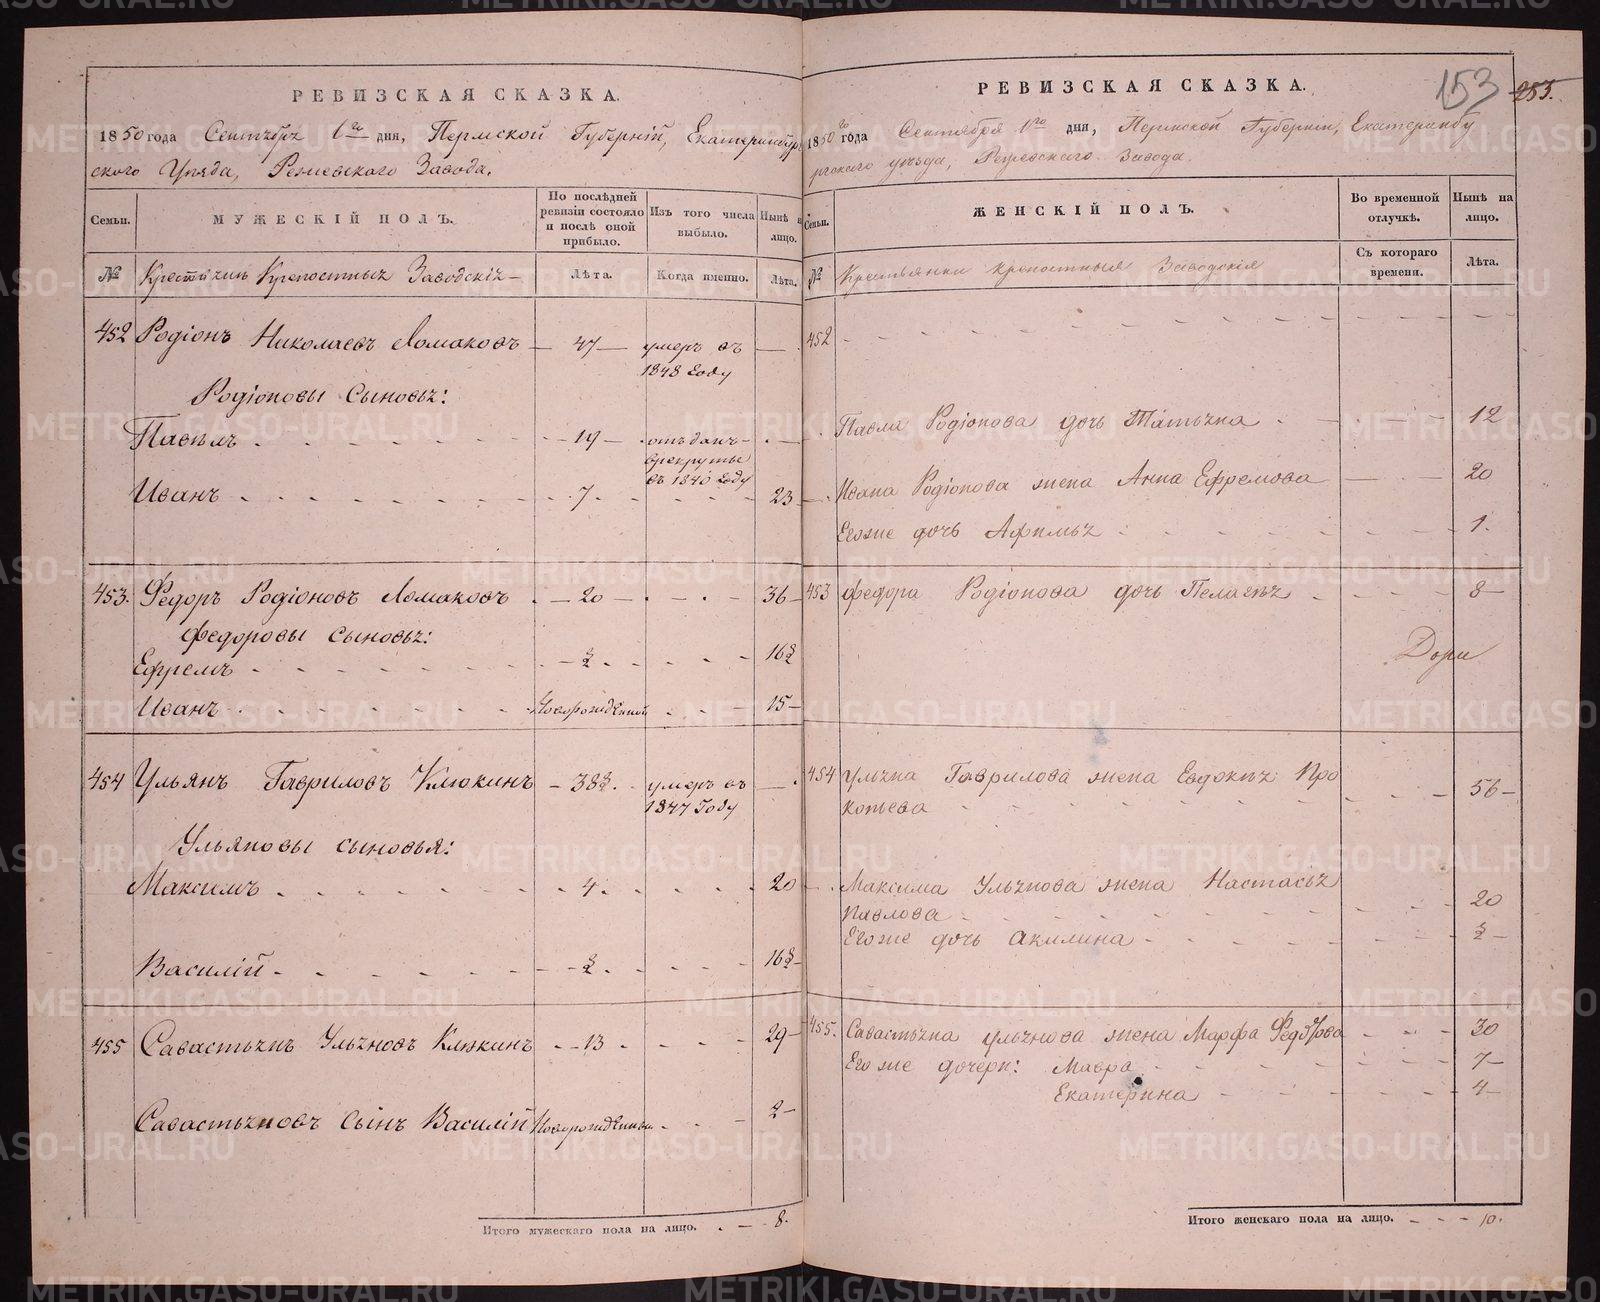 РЕВИЗСКАЯ СКАЗКА.
1850 года Сентября 1го дня, Пермской Губерніи, Екатеринбур
ского Уѣзда, Режевскаго Завода.
Семьи.
МУЖЕСКІЙ ПОЛЪ.
По послѣдней ревизіи состояло и послѣ оной прибыло.
Изъ того числа выбыло.
Нынѣ на лицо.
№
Крестьянъ Крепостныхъ Заводскихъ
Лѣта.
Когда именно.
Лѣта.
452 Родіонъ Николаевъ Ломаковъ — 47 — умеръ въ 1848 Году —
Родіоновы Сыновья:
Павелъ - 19 - отъданъ врекруты въ 1840 Году —
Иванъ - 7 - 23
453. Федоръ Родіоновъ Ломаковъ - 20 - 36
Федоровы Сыновья:
Ефремъ - ½ - 16½
Иванъ - Новорожденной - 15
454 Ульянъ Гавриловъ Клюкинъ - 38½ - умеръ въ 1847 Году —
Ульяновы сыновья:
Максимъ - 4 - 20
Василій - ½ - 16½
455 Савастьянъ Ульяновъ Клюкинъ - 13 - 29
Савастьяновъ Сынъ Василій Новорожденны - 2
Итого мужескаго пола на лицо. - 8.
РЕВИЗСКАЯ СКАЗКА.
153
253.
1850го года Сентября 1го дня, Пермской Губерніи, Екатеринбу
ргскаго уѣзда, Режевскаго Завода.
Семьи.
ЖЕНСКІЙ ПОЛЪ.
Во временной отлучкѣ.
Нынѣ на лицо.
№
Крестьянки крепостныя Заводскія
Съ котораго времени.
Лѣта.
452
Павла Родіонова дочь Татьяна - 12
Ивана Родіонова жена Анна Ефремова - 20
Егоже дочь Афимья - 1.
453 Федора Родіонова дочь Пелагѣя - 8
454 Ульяна Гаврилова жена Евдокья Про
копьева - 56
Максима Ульянова жена Настасья
Павлова - 20
Егоже дочь Акилина - ½
455. Савастьяна Ульянова жена Марфа Федорова - 30
Егоже дочери: Мавра - 7
Екатерина - 4
Итого женскаго пола на лицо. - 10.
METRIKI.GASO-URAL.RU